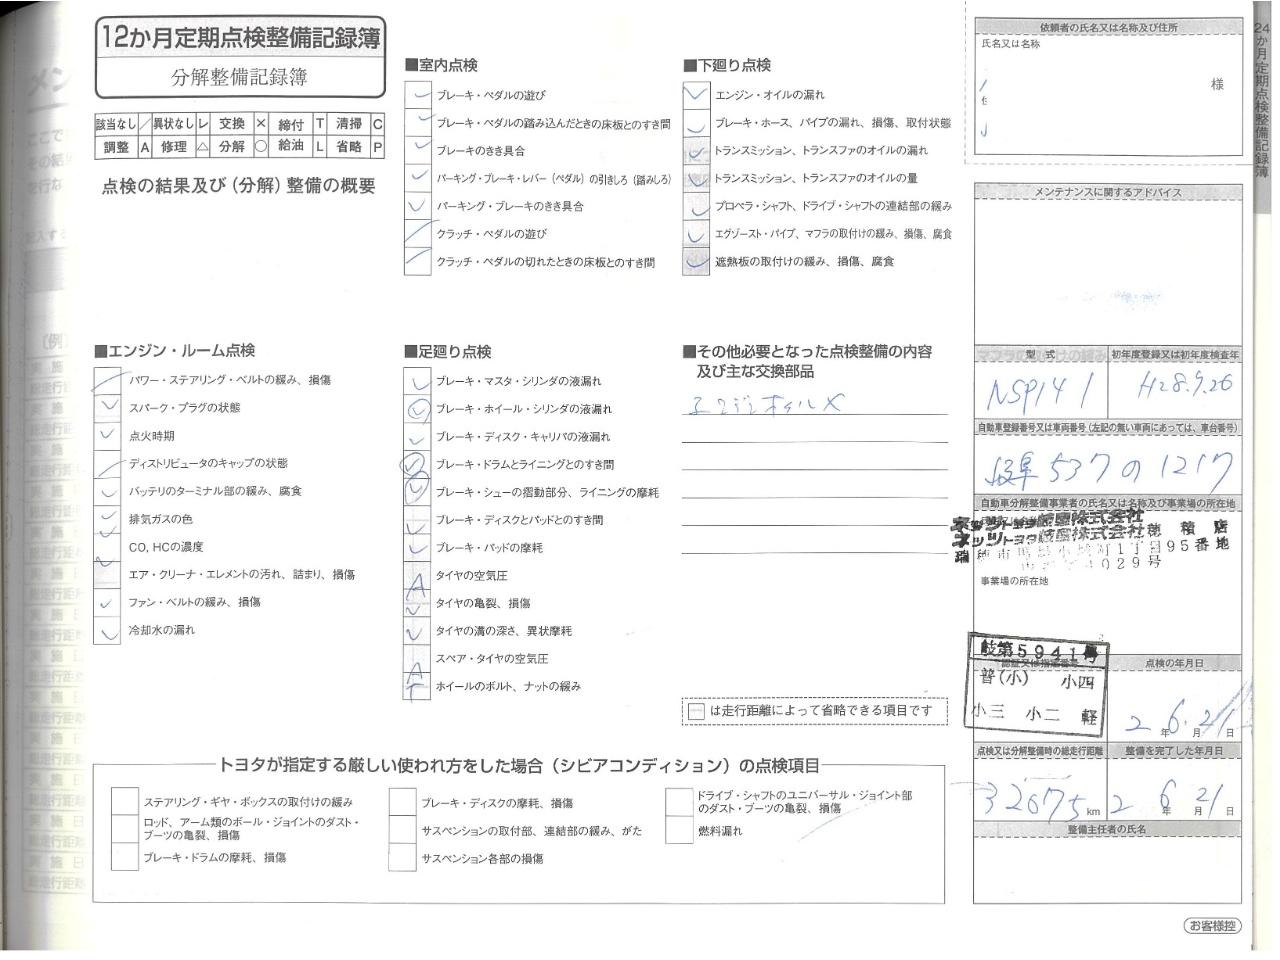 12か月定期点検整備記録簿
分解整備記録簿
該当なし ／ 異状なし レ 交換 × 締付 T 清掃 C
調整 A 修理 △ 分解 ○ 給油 L 省略 P
点検の結果及び(分解)整備の概要
■室内点検
ブレーキ・ペダルの遊び
ブレーキ・ペダルの踏み込んだときの床板とのすき間
ブレーキのきき具合
パーキング・ブレーキ・レバー(ペダル)の引きしろ(踏みしろ)
パーキング・ブレーキのきき具合
クラッチ・ペダルの遊び
クラッチ・ペダルの切れたときの床板とのすき間
■下廻り点検
エンジン・オイルの漏れ
ブレーキ・ホース、パイプの漏れ、損傷、取付状態
トランスミッション、トランスファのオイルの漏れ
トランスミッション、トランスファのオイルの量
プロペラ・シャフト、ドライブ・シャフトの連結部の緩み
エグゾースト・パイプ、マフラの取付けの緩み、損傷、腐食
遮熱板の取付けの緩み、損傷、腐食
■エンジン・ルーム点検
パワー・ステアリング・ベルトの緩み、損傷
スパーク・プラグの状態
点火時期
ディストリビュータのキャップの状態
バッテリのターミナル部の緩み、腐食
排気ガスの色
CO, HCの濃度
エア・クリーナ・エレメントの汚れ、詰まり、損傷
ファン・ベルトの緩み、損傷
冷却水の漏れ
■足廻り点検
ブレーキ・マスタ・シリンダの液漏れ
ブレーキ・ホイール・シリンダの液漏れ
ブレーキ・ディスク・キャリパの液漏れ
ブレーキ・ドラムとライニングとのすき間
ブレーキ・シューの摺動部分、ライニングの摩耗
ブレーキ・ディスクとパッドとのすき間
ブレーキ・パッドの摩耗
A タイヤの空気圧
タイヤの亀裂、損傷
タイヤの溝の深さ、異状摩耗
A スペア・タイヤの空気圧
T ホイールのボルト、ナットの緩み
■その他必要となった点検整備の内容
及び主な交換部品
エンジンオイル ×
は走行距離によって省略できる項目です
トヨタが指定する厳しい使われ方をした場合(シビアコンディション)の点検項目
ステアリング・ギヤ・ボックスの取付けの緩み
ロッド、アーム類のボール・ジョイントのダスト・
ブーツの亀裂、損傷
ブレーキ・ドラムの摩耗、損傷
ブレーキ・ディスクの摩耗、損傷
サスペンションの取付部、連結部の緩み、がた
サスペンション各部の損傷
ドライブ・シャフトのユニバーサル・ジョイント部
のダスト・ブーツの亀裂、損傷
燃料漏れ
依頼者の氏名又は名称及び住所
氏名又は名称
様
メンテナンスに関するアドバイス
型 式
初年度登録又は初年度検査年
NSP141
H28.9.26
自動車登録番号又は車両番号(左記の無い車両にあっては、車台番号)
岐阜 537 の 1217
自動車分解整備事業者の氏名又は名称及び事業場の所在地
ネッツトヨタ岐阜株式会社
ネッツトヨタ岐阜株式会社 穂積店
1丁目95番地
事業場の所在地
岐第5941号
認証又は指定番号
普(小) 小四
小三 小二 軽
点検の年月日
2年 6月 21日
点検又は分解整備時の総走行距離
整備を完了した年月日
32675 km
2年 6月 21日
整備主任者の氏名
お客様控
24か月定期点検整備記録簿